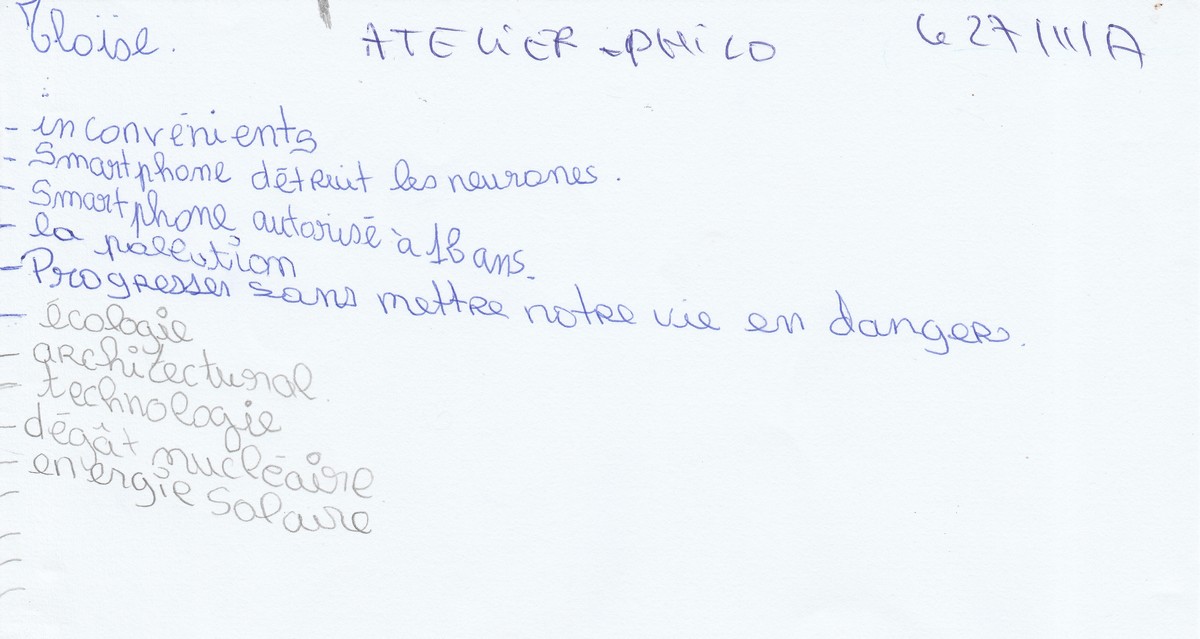 Eloïse. ATELIER - PHILO Le 27/11/A
- inconvénients
- Smartphone détruit les neurones.
- Smartphone autorisé à 18 ans.
- la pollution
- Progresser sans mettre notre vie en danger.
- écologie
- architectural
- technologie
- dégât nucléaire
- energie solaire